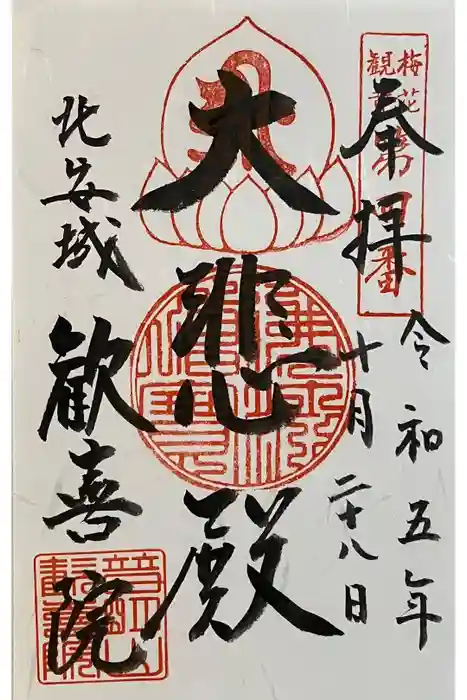 奉拝
令和五年
十月二十八日
大悲殿
北安城
歓喜院
梅花
観音
第四番